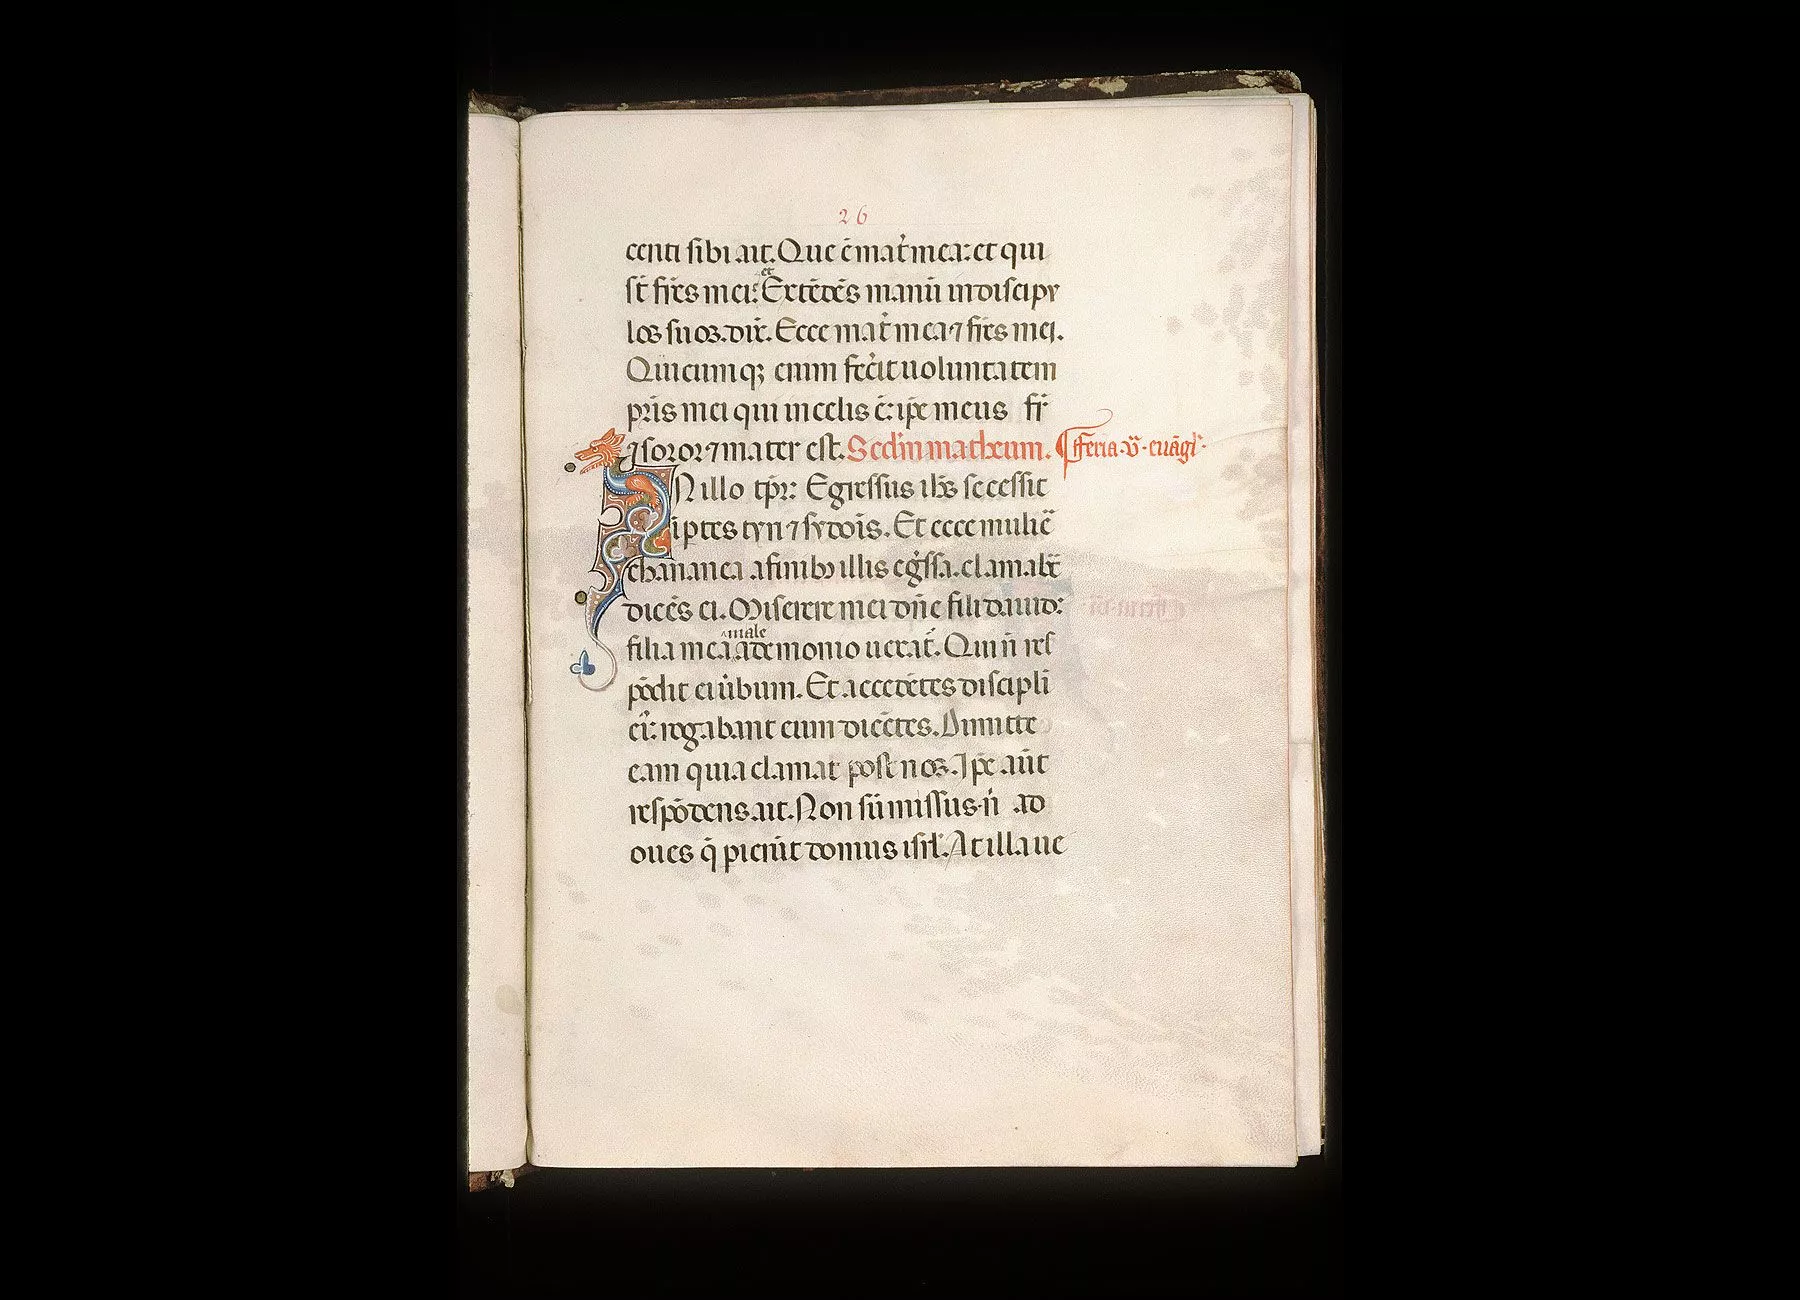 26
centi sibi ait. Que ē mat̉ mea: et qui
st̄ fr̄es mei: et Extēdēs manū in discipu
los suos. dix̄. Ecce mat̉ mea ⁊ fr̄es mei.
Quicumqꝫ enim fec̉it uoluntatem
pr̄is mei qui in celis ē: ip̄e meus fr̄
⁊ soror ⁊ mater est. Scd̄m matheum. ¶ fferia. v̄. euāgl̄.
N illo tp̄r: Egressus ih̄s secessit
ī ptes tyri ⁊ sydōis. Et ecce muliē
chananea a finibꝫ illis eg̉ssa. clamab̄
dicēs ei. Miserere mei dn̄e fili dauid:
filia mea male a demonio uexat̄. Qui n̄ res
pōdit ei ủbum. Et accedētes discipli
eī: rogabant eum dicētes. Dimitte
eam quia clamat post nos. Ip̄e aūt
respōdens. ait. Non sū missus. n̄ ad
oues q̄ pierūt domus isrl̄. At illa ue